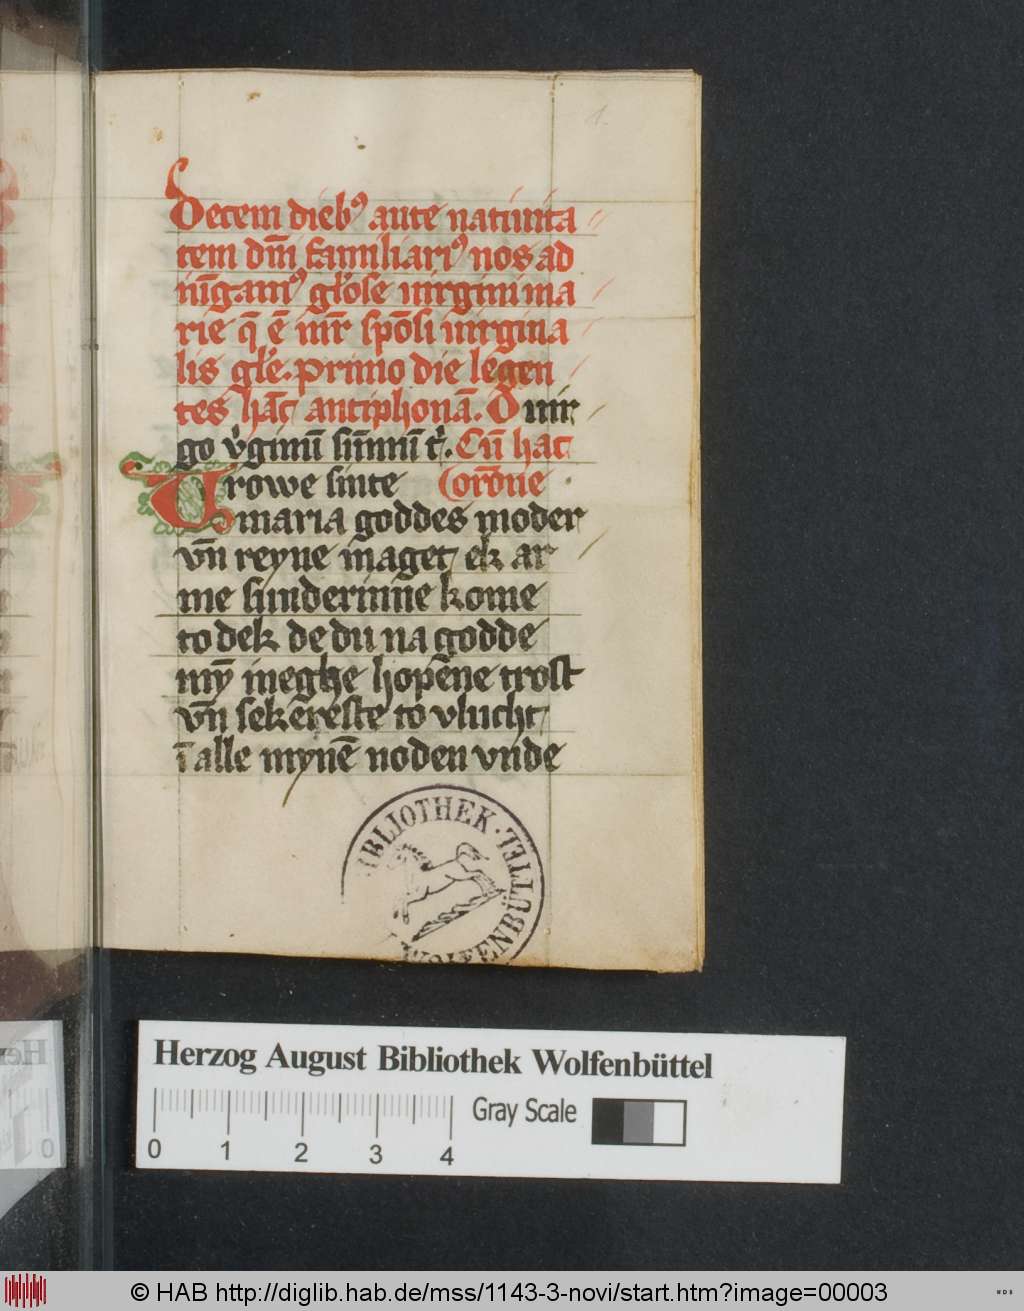 1.
Decem diebꝰ ante natiuita
tem dm̄ familiariꝰ nos ad
iūgamꝰ gl'ose uirgini ma
rie q̄ ē mr̄ spōsi uirgina
lis gl'e. primo die legen
tes hāc antiphonā. O uir
go v'ginū sūmi tr'. Cū hac
Trowe sinte orōne
maria goddes moder
vn̄ reyne maget ek ar
me sunderinne kome
to dek de du na godde
my̅ meghe hopēne trost
vn̄ sekēreste to vlucht
ī alle mynē noden vnde
BIBLIOTHEK · WOLFENBÜTTEL
Herzog August Bibliothek Wolfenbüttel
Gray Scale
0 1 2 3 4
© HAB http://diglib.hab.de/mss/1143-3-novi/start.htm?image=00003